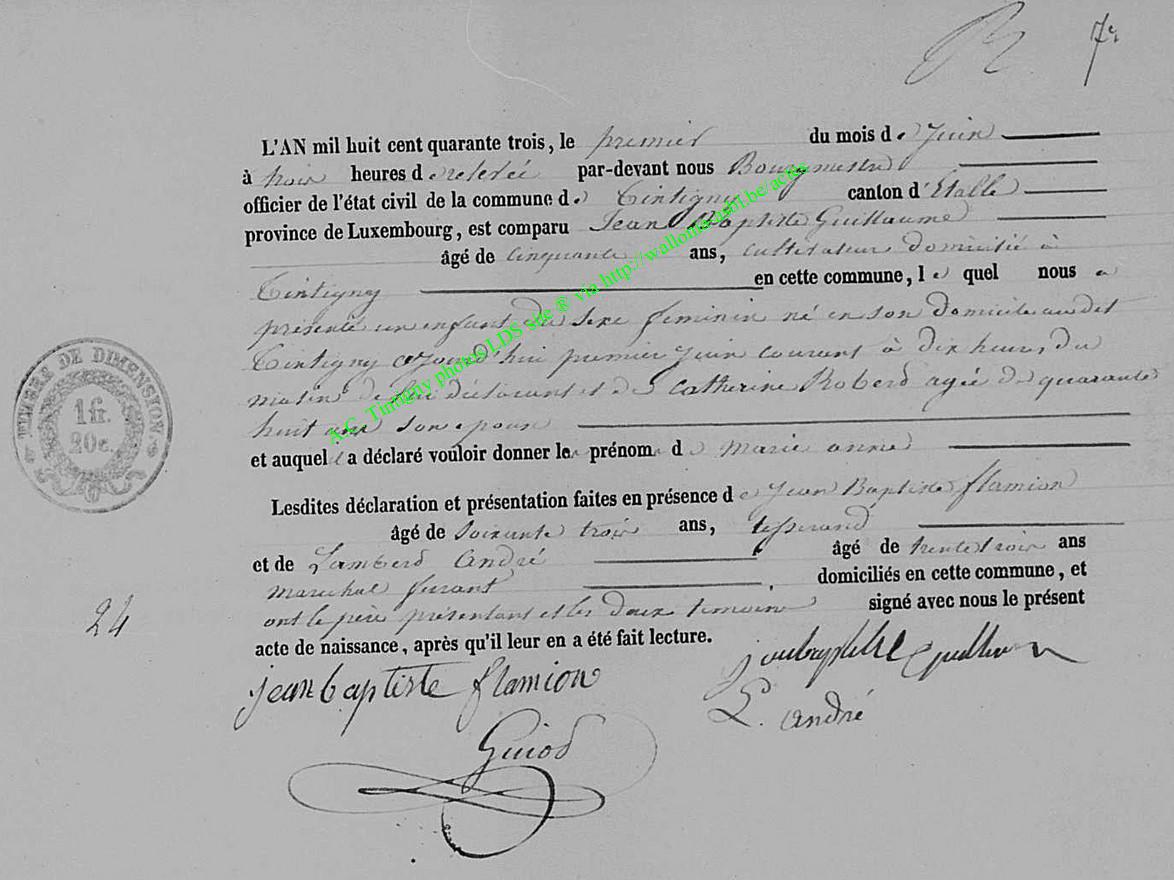 7e
L'AN mil huit cent quarante trois, le premier du mois de Juin
à trois heures de relevée par-devant nous Bourgmestre
officier de l'état civil de la commune de Tintigny canton d'Etalle
province de Luxembourg, est comparu Jean Baptiste Guillaume
âgé de cinquante ans, cultivateur domicilié à
Tintigny en cette commune, lequel nous a
présenté un enfant du sexe feminin né en son domicile audit
Tintigny aujourd'hui premier Juin courant à dix heures du
matin de lui déclarant et de Catherine Roberd agée de quarante
huit ans son epouse
et auquel il a déclaré vouloir donner le prénom de marie anne
Lesdites déclaration et présentation faites en présence de Jean Baptiste flamion
âgé de soixante trois ans, tisserand
et de Lamberd André âgé de trente trois ans
marechal ferant domiciliés en cette commune, et
ont le père présentant et les deux temoins signé avec nous le présent
acte de naissance, après qu'il leur en a été fait lecture.
jean baptiste flamion
L. andré
Guiod
24
TIMBRE DE DIMENSION
1 fr.
20 c.
A.C. Tintigny photos LDS site ® via http://wallonia.mbt.be/actes